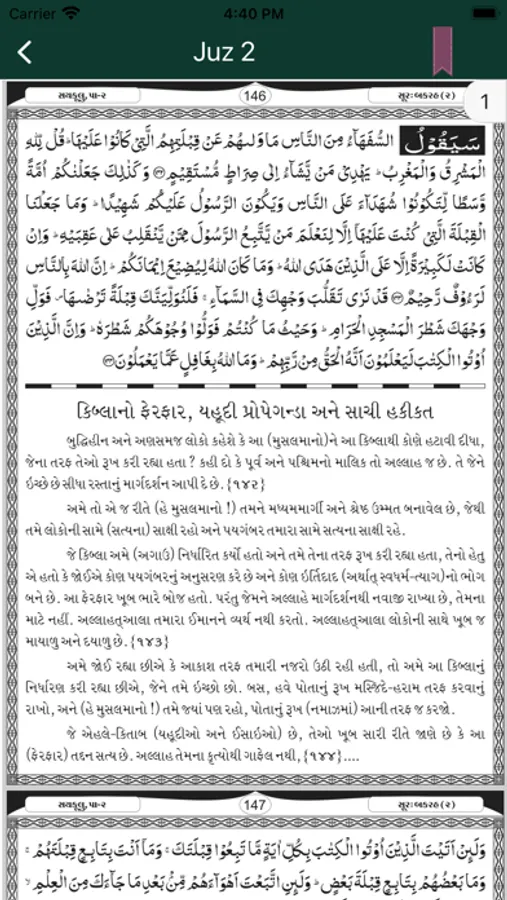 Carrier 4:40 PM
Juz 2
સયકૂલુ, પા-૨ 146 સૂરઃબકરહ(૨)
1
سَيَقُوْلُ السُّفَهَآءُ مِنَ النَّاسِ مَا وَلّٰىهُمْ عَنْ قِبْلَتِهِمُ الَّتِيْ كَانُوْا عَلَيْهَا ؕ قُلْ لِّلّٰهِ
الْمَشْرِقُ وَالْمَغْرِبُ ؕ يَهْدِيْ مَنْ يَّشَآءُ اِلٰى صِرَاطٍ مُّسْتَقِيْمٍ ۝ وَكَذٰلِكَ جَعَلْنٰكُمْ اُمَّةً
وَّسَطًا لِّتَكُوْنُوْا شُهَدَآءَ عَلَى النَّاسِ وَيَكُوْنَ الرَّسُوْلُ عَلَيْكُمْ شَهِيْدًا ؕ وَمَا جَعَلْنَا
الْقِبْلَةَ الَّتِيْ كُنْتَ عَلَيْهَآ اِلَّا لِنَعْلَمَ مَنْ يَّتَّبِعُ الرَّسُوْلَ مِمَّنْ يَّنْقَلِبُ عَلٰى عَقِبَيْهِ ؕ وَاِنْ
كَانَتْ لَكَبِيْرَةً اِلَّا عَلَى الَّذِيْنَ هَدَى اللّٰهُ ؕ وَمَا كَانَ اللّٰهُ لِيُضِيْعَ اِيْمَانَكُمْ ؕ اِنَّ اللّٰهَ بِالنَّاسِ
لَرَءُوْفٌ رَّحِيْمٌ ۝ قَدْ نَرٰى تَقَلُّبَ وَجْهِكَ فِي السَّمَآءِ ۚ فَلَنُوَلِّيَنَّكَ قِبْلَةً تَرْضٰىهَا ۪ فَوَلِّ
وَجْهَكَ شَطْرَ الْمَسْجِدِ الْحَرَامِ ؕ وَحَيْثُ مَا كُنْتُمْ فَوَلُّوْا وُجُوْهَكُمْ شَطْرَهٗ ؕ وَاِنَّ الَّذِيْنَ
اُوْتُوا الْكِتٰبَ لَيَعْلَمُوْنَ اَنَّهُ الْحَقُّ مِنْ رَّبِّهِمْ ؕ وَمَا اللّٰهُ بِغَافِلٍ عَمَّا يَعْمَلُوْنَ ۝
કિબ્લાનો ફેરફાર, યહૂદી પ્રોપેગન્ડા અને સાચી હકીકત
બુદ્ધિહીન અને અણસમજ લોકો કહેશે કે આ (મુસલમાનો)ને આ કિબ્લાથી કોણે હટાવી દીધા,
જેના તરફ તેઓ રૂખ કરી રહ્યા હતા ? કહી દો કે પૂર્વ અને પશ્ચિમનો માલિક તો અલ્લાહ જ છે. તે જેને
ઇચ્છે છે સીધા રસ્તાનું માર્ગદર્શન આપી દે છે. {૧૪૨}
અમે તો એ જ રીતે (હે મુસલમાનો !) તમને મધ્યમમાર્ગી અને શ્રેષ્ઠ ઉમ્મત બનાવેલ છે, જેથી
તમે લોકોની સામે (સત્યના) સાક્ષી રહો અને પયગંબર તમારા સામે સત્યના સાક્ષી રહે.
જે કિબ્લા અમે (અગાઉ) નિર્ધારિત કર્યો હતો અને તમે તેના તરફ રૂખ કરી રહ્યા હતા, તેનો હેતુ
એ હતો કે જોઈએ કોણ પયગંબરનું અનુસરણ કરે છે અને કોણ ઇર્તિદાદ (અર્થાત્ સ્વધર્મ-ત્યાગ)નો ભોગ
બને છે. આ ફેરફાર ખૂબ ભારે બોજ હતો. પરંતુ જેમને અલ્લાહે માર્ગદર્શનથી નવાજી રાખ્યા છે, તેમના
માટે નહીં. અલ્લાહતઆલા તમારા ઈમાનને વ્યર્થ નથી કરતો. અલ્લાહતઆલા લોકોની સાથે ખૂબ જ
માયાળુ અને દયાળુ છે. {૧૪૩}
અમે જોઈ રહ્યા છીએ કે આકાશ તરફ તમારી નજરો ઉઠી રહી હતી, તો અમે આ કિબ્લાનું
નિર્ધારણ કરી રહ્યા છીએ, જેને તમે ઇચ્છો છો. બસ, હવે પોતાનું રૂખ મસ્જિદે-હરામ તરફ કરવાનું
રાખો, અને (હે મુસલમાનો !) તમે જ્યાં પણ રહો, પોતાનું રૂખ (નમાઝમાં) આની તરફ જ કરજો.
જે એહલે-કિતાબ (યહૂદીઓ અને ઈસાઇઓ) છે, તેઓ ખૂબ સારી રીતે જાણે છે કે આ
(ફેરફાર) તદ્દન સત્ય છે. અલ્લાહ તેમના કૃત્યોથી ગાફેલ નથી, {૧૪૪}....
સયકૂલુ, પા-૨ 147 સૂરઃબકરહ(૨)
وَلَئِنْ اَتَيْتَ الَّذِيْنَ اُوْتُوا الْكِتٰبَ بِكُلِّ اٰيَةٍ مَّا تَبِعُوْا قِبْلَتَكَ ۚ وَمَآ اَنْتَ بِتَابِعٍ قِبْلَتَهُمْ ۚ
وَمَا بَعْضُهُمْ بِتَابِعٍ قِبْلَةَ بَعْضٍ ؕ وَلَئِنِ اتَّبَعْتَ اَهْوَآءَهُمْ مِّنْۢ بَعْدِ مَا جَآءَكَ مِنَ الْعِلْمِ ۙ